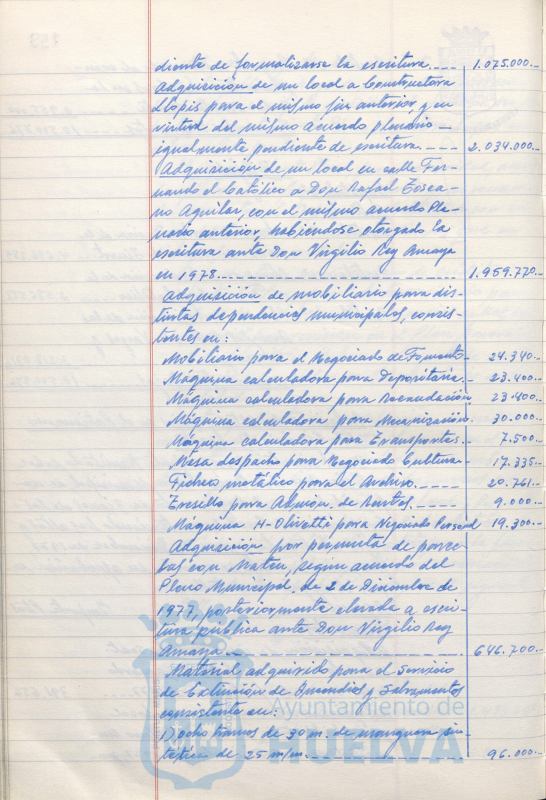 diente de formalizarse la escritura.... 1.075.000.-
Adquisición de un local a Constructora
Llopis para el mismo fin anterior, y en
virtud del mismo acuerdo plenario -
igualmente pendiente de escritura.---- 2.034.000.-
Adquisición de un local en calle Fer-
nando el Católico a Don Rafael Tosca-
no Aguilar, con el mismo acuerdo Ple-
nario anterior, habiéndose otorgado la
escritura ante Don Virgilio Rey Amaya
en 1978.---- 1.959.720.-
Adquisición de mobiliario para dis-
tintas dependencias municipales, consis-
tentes en:
Mobiliario para el Negociado de Fomento- 24.340.-
Máquina calculadora para Depositaría.- 23.400.-
Máquina calculadora para Recaudación 23.400.-
Máquina calculadora para Mecanización. 30.000.-
Máquina calculadora para Transportes.- 7.500.-
Mesa despacho para Negociado Cultura- 17.335.-
Fichero metálico para el Archivo.---- 20.761.-
Tresillo para Admón. de Rentas.---- 9.000.-
Máquina H-Olivetti para Negociado Personal 19.300.-
Adquisición por permuta de parce-
las con Mateu, según acuerdo del
Pleno Municipal, de 2 de Diciembre de
1977, posteriormente elevada a escri-
tura pública ante Don Virgilio Rey
Amaya.---- 646.700.-
Material adquirido para el Servicio
de Extinción de Incendios y Salvamentos
consistente en:
1) Ocho tramos de 30 m. de manguera sin-
tética de 25 m/m.---- 96.000.-
Ayuntamiento de
HUELVA